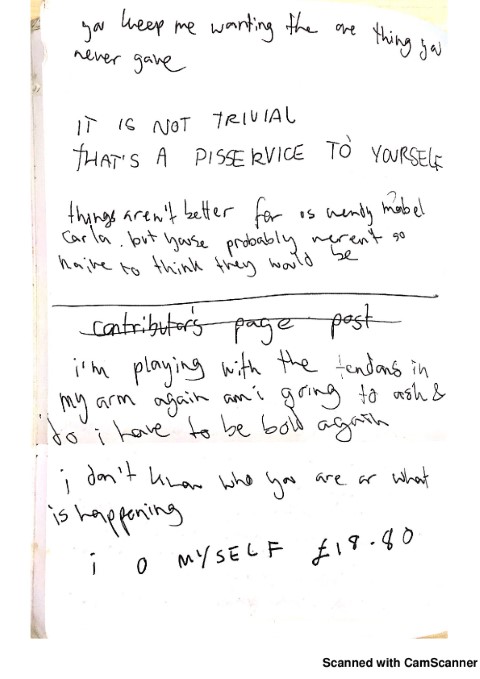 you keep me wanting the one thing you
never gave
IT IS NOT TRIVIAL
THAT'S A DISSERVICE TO YOURSELF
things aren't better for us wendy mabel
carla. but youse probably weren't so
naive to think they would be
contributor's page post
i'm playing with the tendons in
my arm again am i going to ask &
do i have to be bold again
i don't know who you are or what
is happening
i O MYSELF £18.80
Scanned with CamScanner